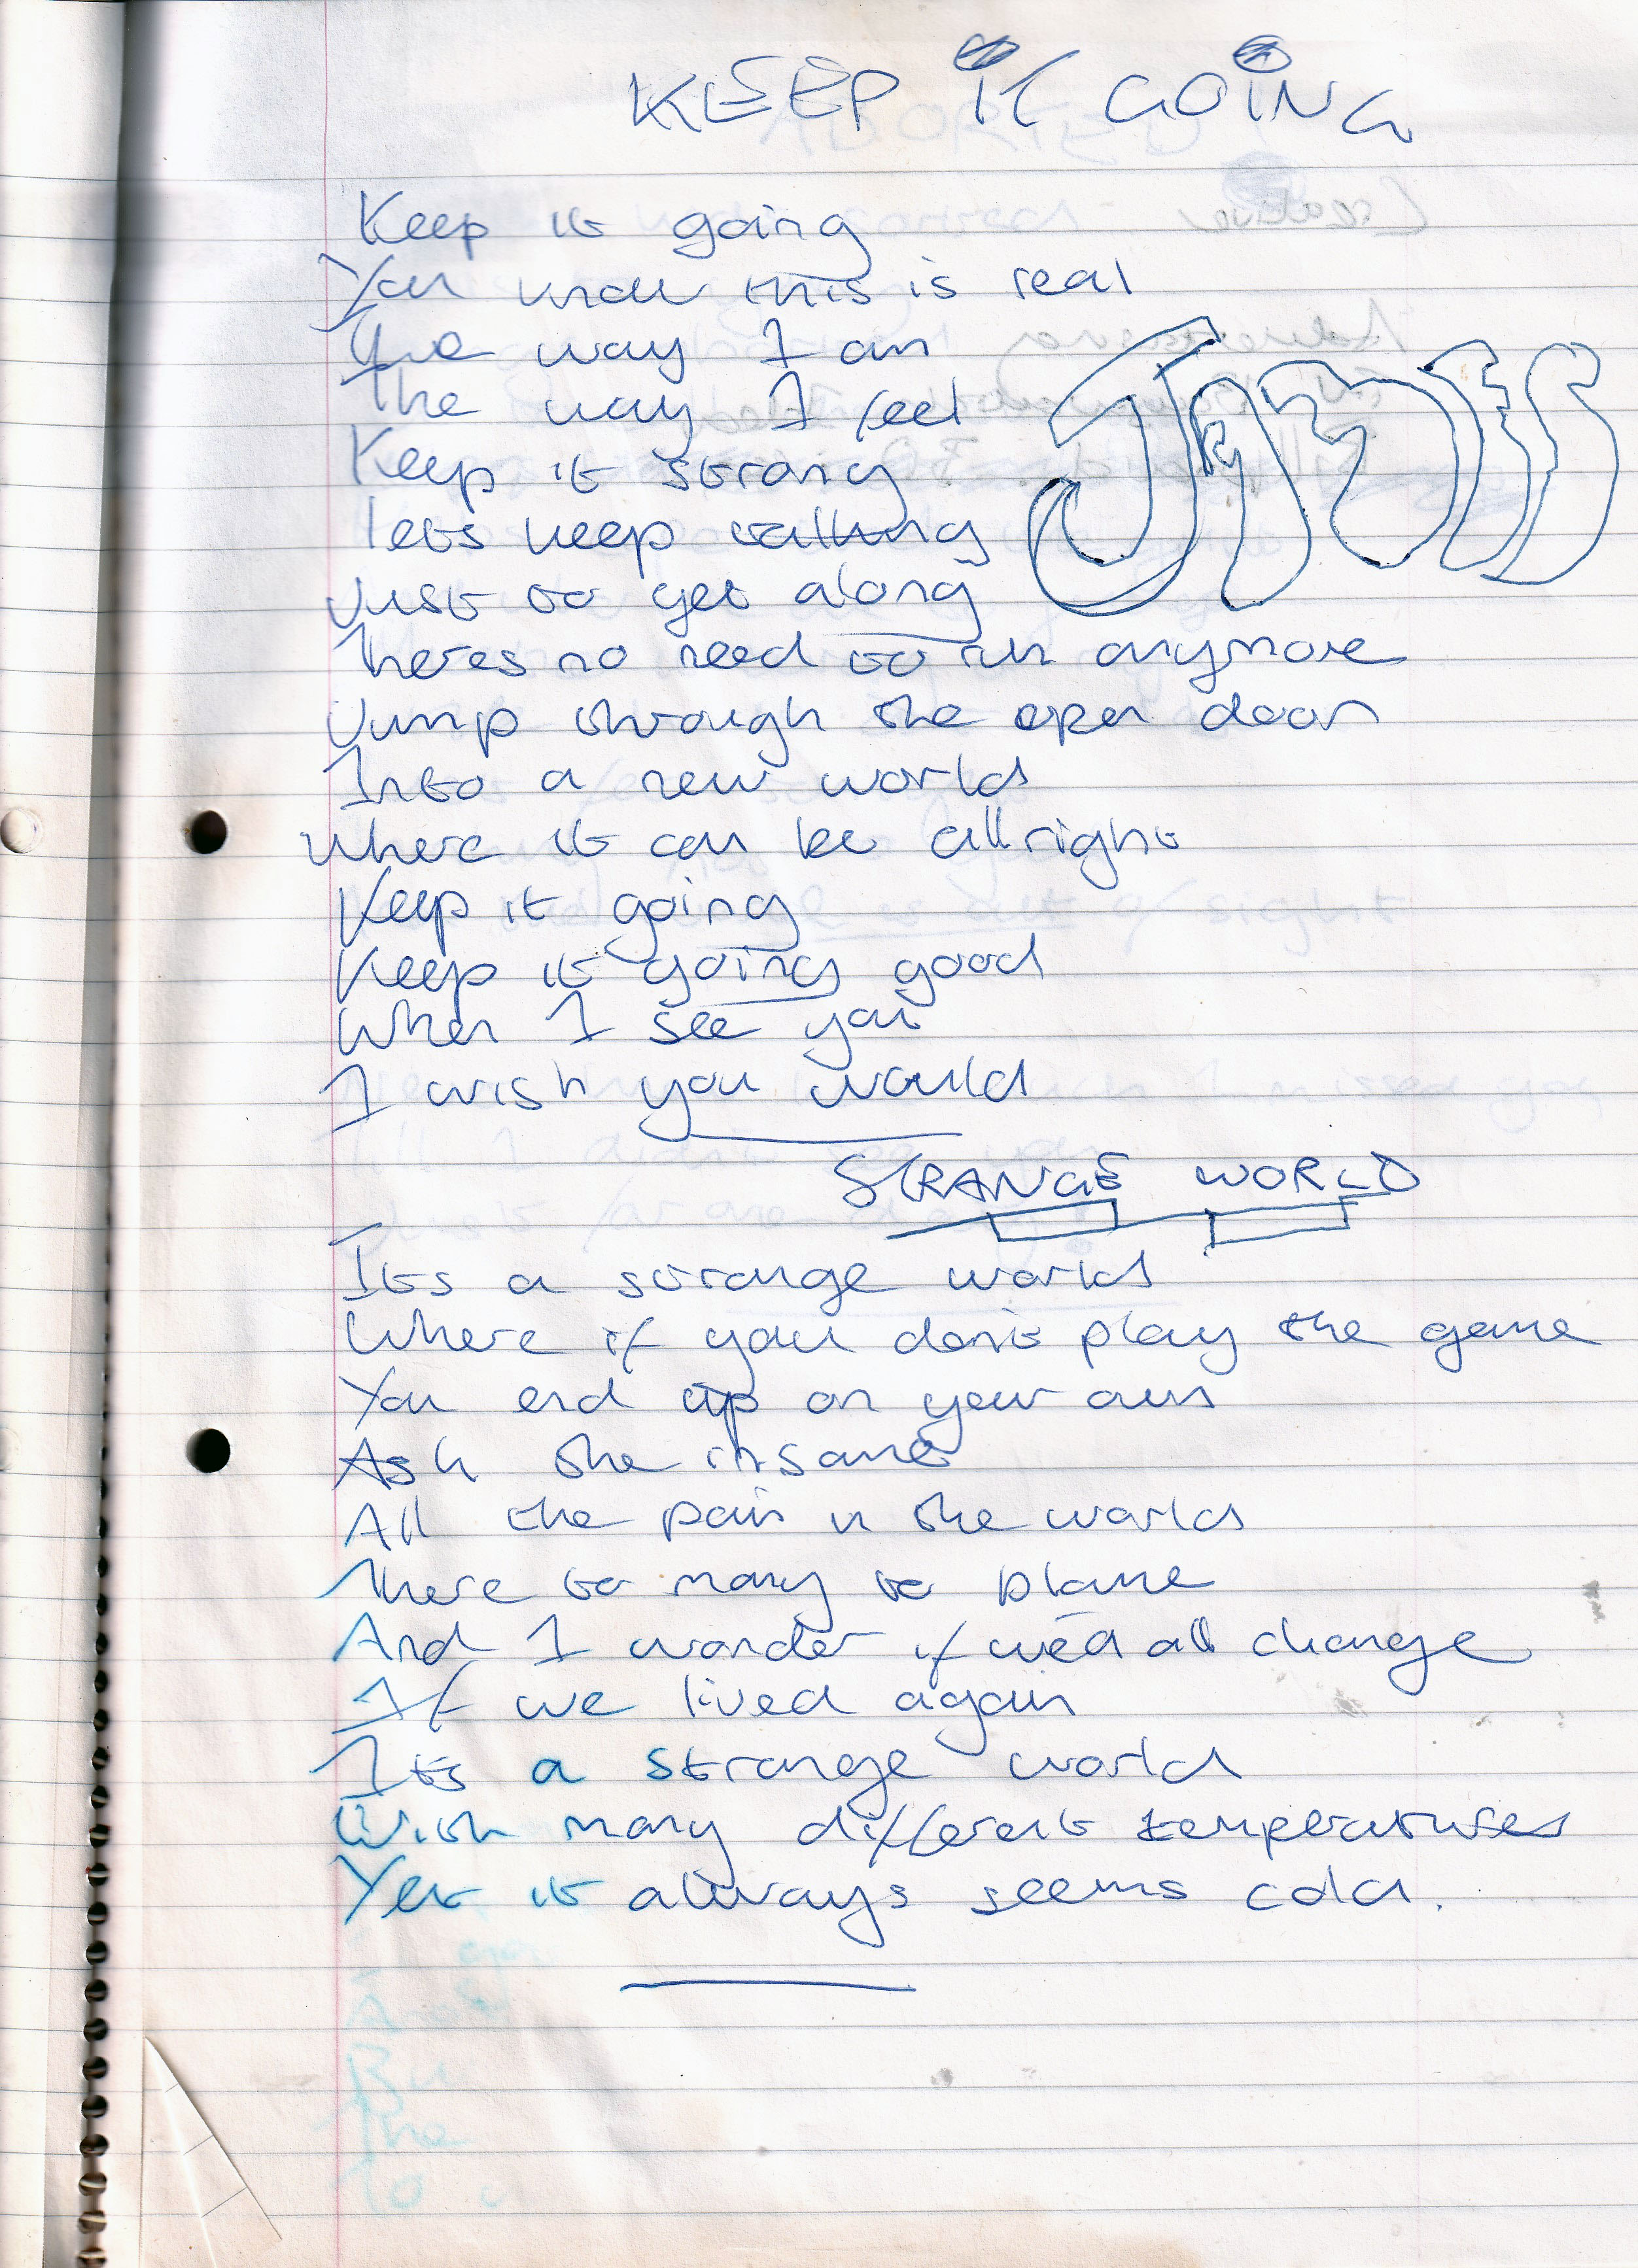 KEEP it GOiNG
Keep it going
You know this is real
The way I am
The way I feel
Keep it strong
lets keep talking
Just to get along
Theres no need to run anymore
Jump through the open door
Into a new world
Where it can be allright
Keep it going
Keep it going good
When I see you
I wish you would
JAMES
STRANGE WORLD
Its a strange world
Where if you don't play the game
You end up on your own
Ask the insane
All the pain in the world
There to many to blame
And I wonder if we'd all change
If we lived again
Its a strange world
With many different temperatures
Yet it always seems cold.